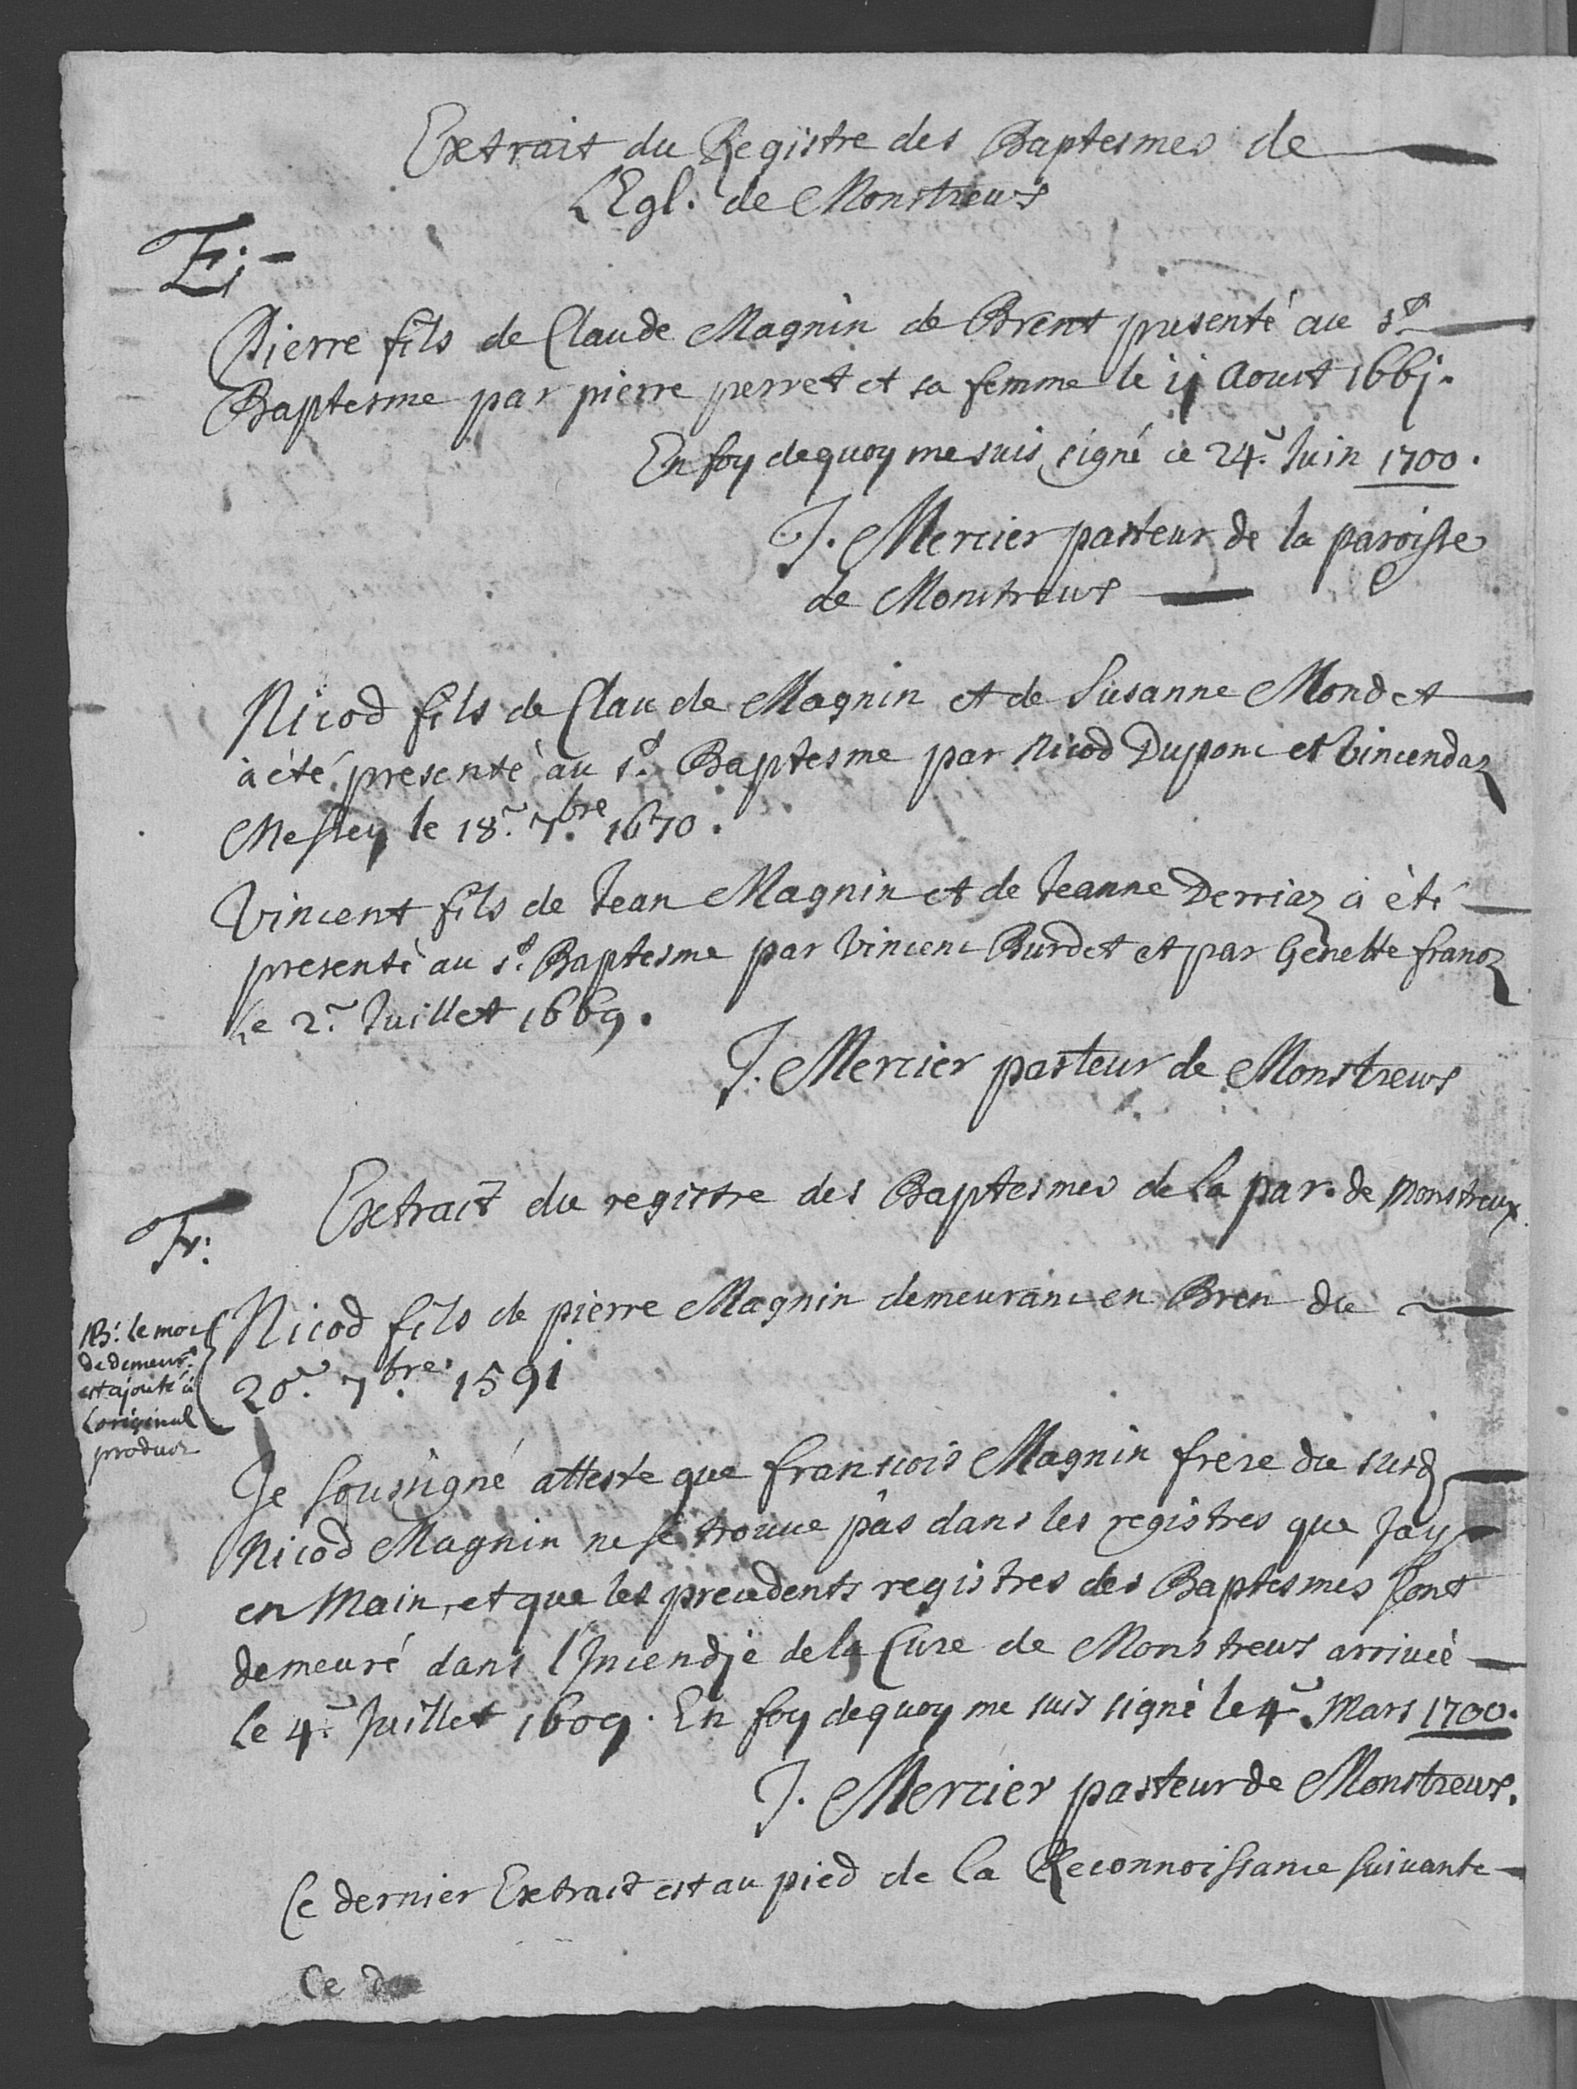 Extrait du Registre des Baptesmes de
L'Egl. de Monstreux
E:
Pierre fils de Claude Magnin de Brent presenté au st
Baptesme par pierre perret et sa femme le ij Aoust 166j.
En foy dequoy me suis signé ce 24e Juin 1700.
J. Mercier pasteur de la paroisse
de Monstreux
Nicod fils de Claude Magnin et de Susanne Mondet
à été presenté au st Baptesme par Nicod Dupont et Vincendaz
le 18e 7bre 1670.
Vincent fils de Jean Magnin et de Jeanne Derriaz à été
presenté au st Baptesme par Vincent Burdet et par Genette franoz
Le 2e Juillet 1669.
J. Mercier pasteur de Monstreux
Extrait du registre des Baptesmes de la par. de Monstreux
F:
Nicod fils de pierre Magnin demeurant en Bren du
20e 7bre 1591
NB: le mot
de demeurt
est ajouté à
L'original
produit
Je soussigné atteste que franscois Magnin frere du susd
Nicod Magnin ne se trouue pas dans les registres que Jay
en Main, et que les precedents registres des Baptesmes sont
demeuré dans l'Incendie de la Cure de Monstreux arriuée
le 4e Juillet 1609. En foy dequoy me suis signé le 4e Mars 1700.
J. Mercier pasteur de Monstreux.
Ce dernier Extrait est au pied de la Reconnoissance suivante
Ce